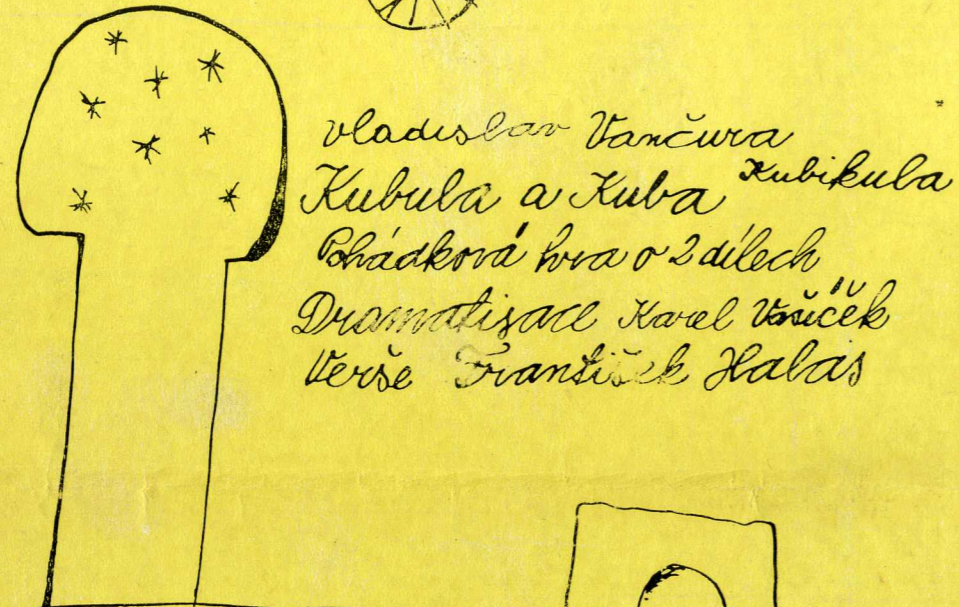 Vladislav Vančura
Kubula a Kuba Kubikula
Pohádková hra o 2 dílech
Dramatisace Karel Vašíček
Verše František Halas